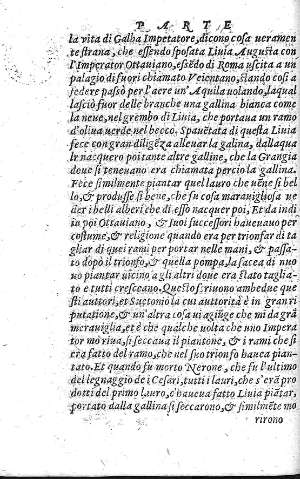 PARTE
la vita di Galba Impetatore, dicono cosa ueramen
te strana, che essendo sposata Liuia Augusta con
l'Imperator Ottauiano, essẽdo di Roma uscita a un
palagio di fuori chiamato Veientano, stando cosi a
sedere passò per l'aere un'Aquila uolando, laqual
lasciò fuor delle branche una gallina bianca come
la neue, nel grembo di Liuia, che portaua un ramo
d'oliua uerde nel becco. Spauẽtata di questa Liuia
fece con gran diligẽza alleuar la galina, dallaqua
le nacquero poi tante altre galline, che la Grangia
doue si teneuano era chiamata percio la gallina.
Fece similmente piantar quel lauro che uẽne si bel
lo, & produsse si bene, che fu cosa marauigliosa ue
der i belli alberi che di esso nacquer poi, Et da indi
in poi Ottauiano, & suoi successori haueuano per
costume, & religione quando era per trionfar di ta
gliar di quei rami per portar nelle mani, & passa-
to dopò il trionfo, & quella pompa, la facea di nuo
uo piantar uicino a gli altri doue era stato taglia-
to e tutti cresceano. Questo scriuono ambedue que
sti auttori, et Suetonio la cui auttorità è in gran ri
putatione, & un'altra cosa ui agiũge che mi da grã
merauiglia, et è che qualche uolta che uno Impera
tor moriua, si seccaua il piantone, & i rami che si
era fatto del ramo, che nel suo trionfo hauea pian-
tato. Et quando fu morto Nerone, che fu l'ultimo
del legnaggio de i Cesari, tutti i lauri, che s'erã pro
dotti del primo lauro, e haueua fatto Liuia piãtar,
portato dalla gallina si seccarono, & similmẽte mo
rirono